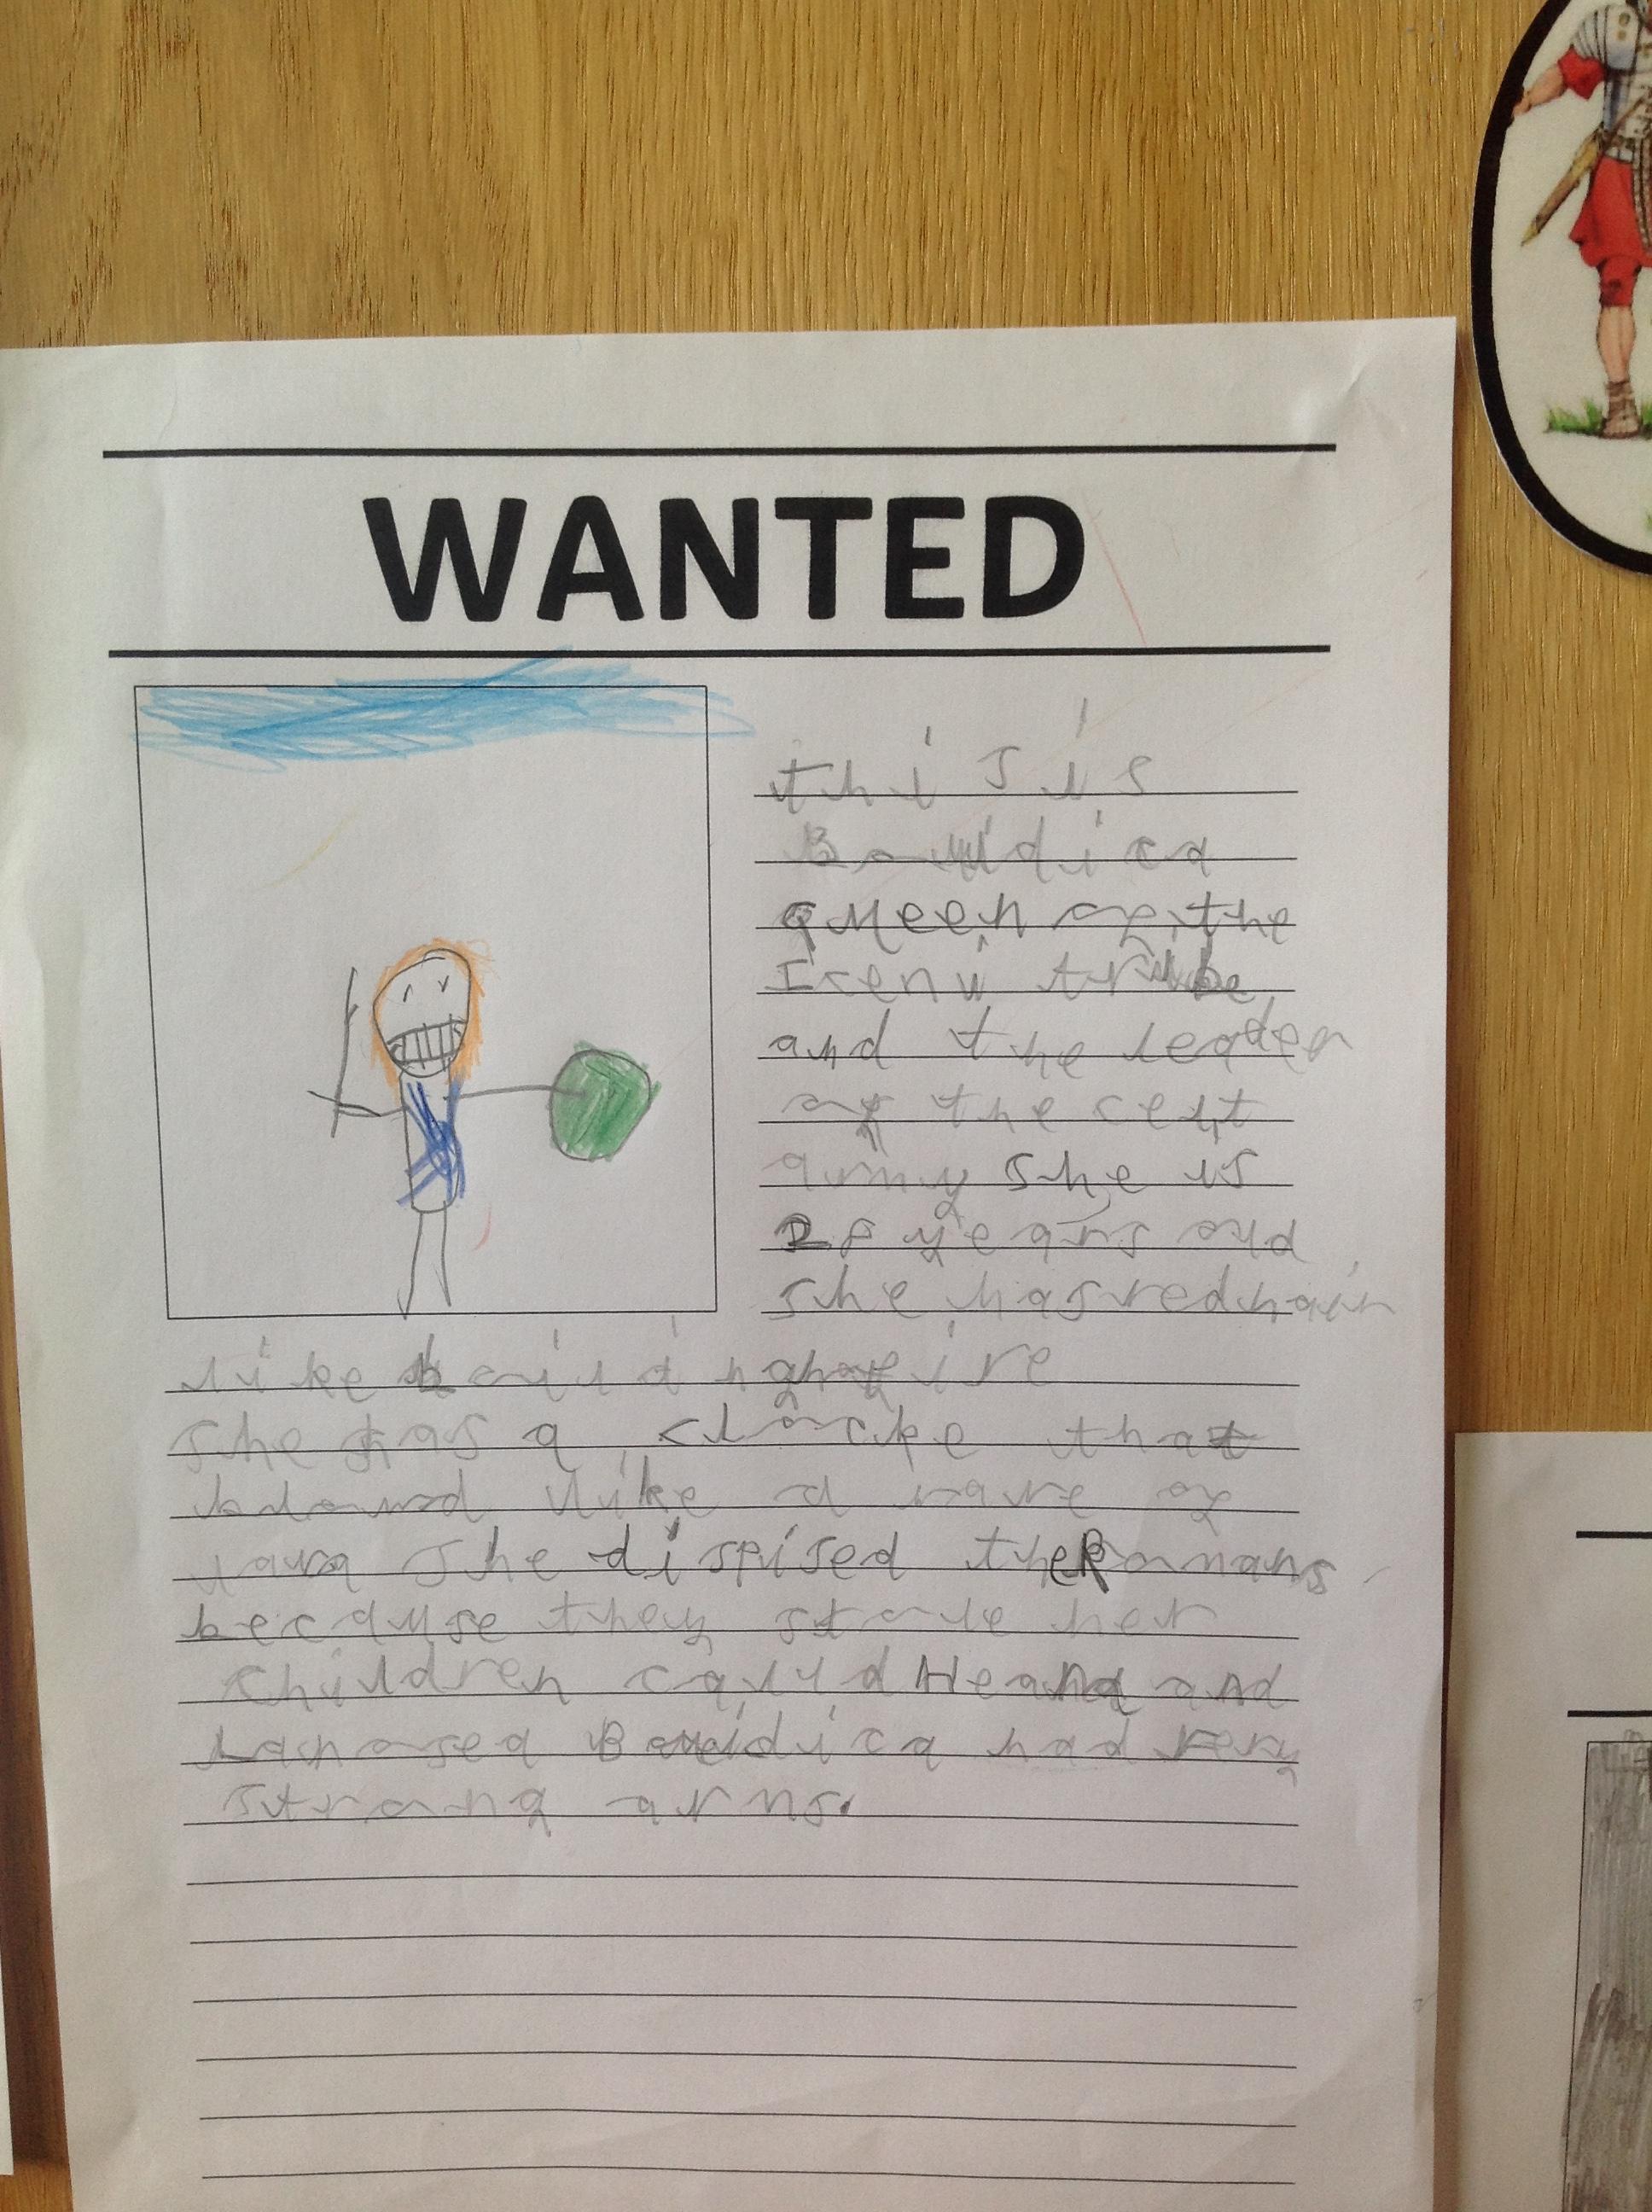 WANTED
this is
Boudica
queen of the
Iceni tribe
and the leader
of the celt
army she is
28 years old
she has red hair
like
she has a clocke that
blowd like a wave of
lava she dispised the Romans
because they stole her
children calld Heanna and
Lanosea Boudica had very
strong arms.